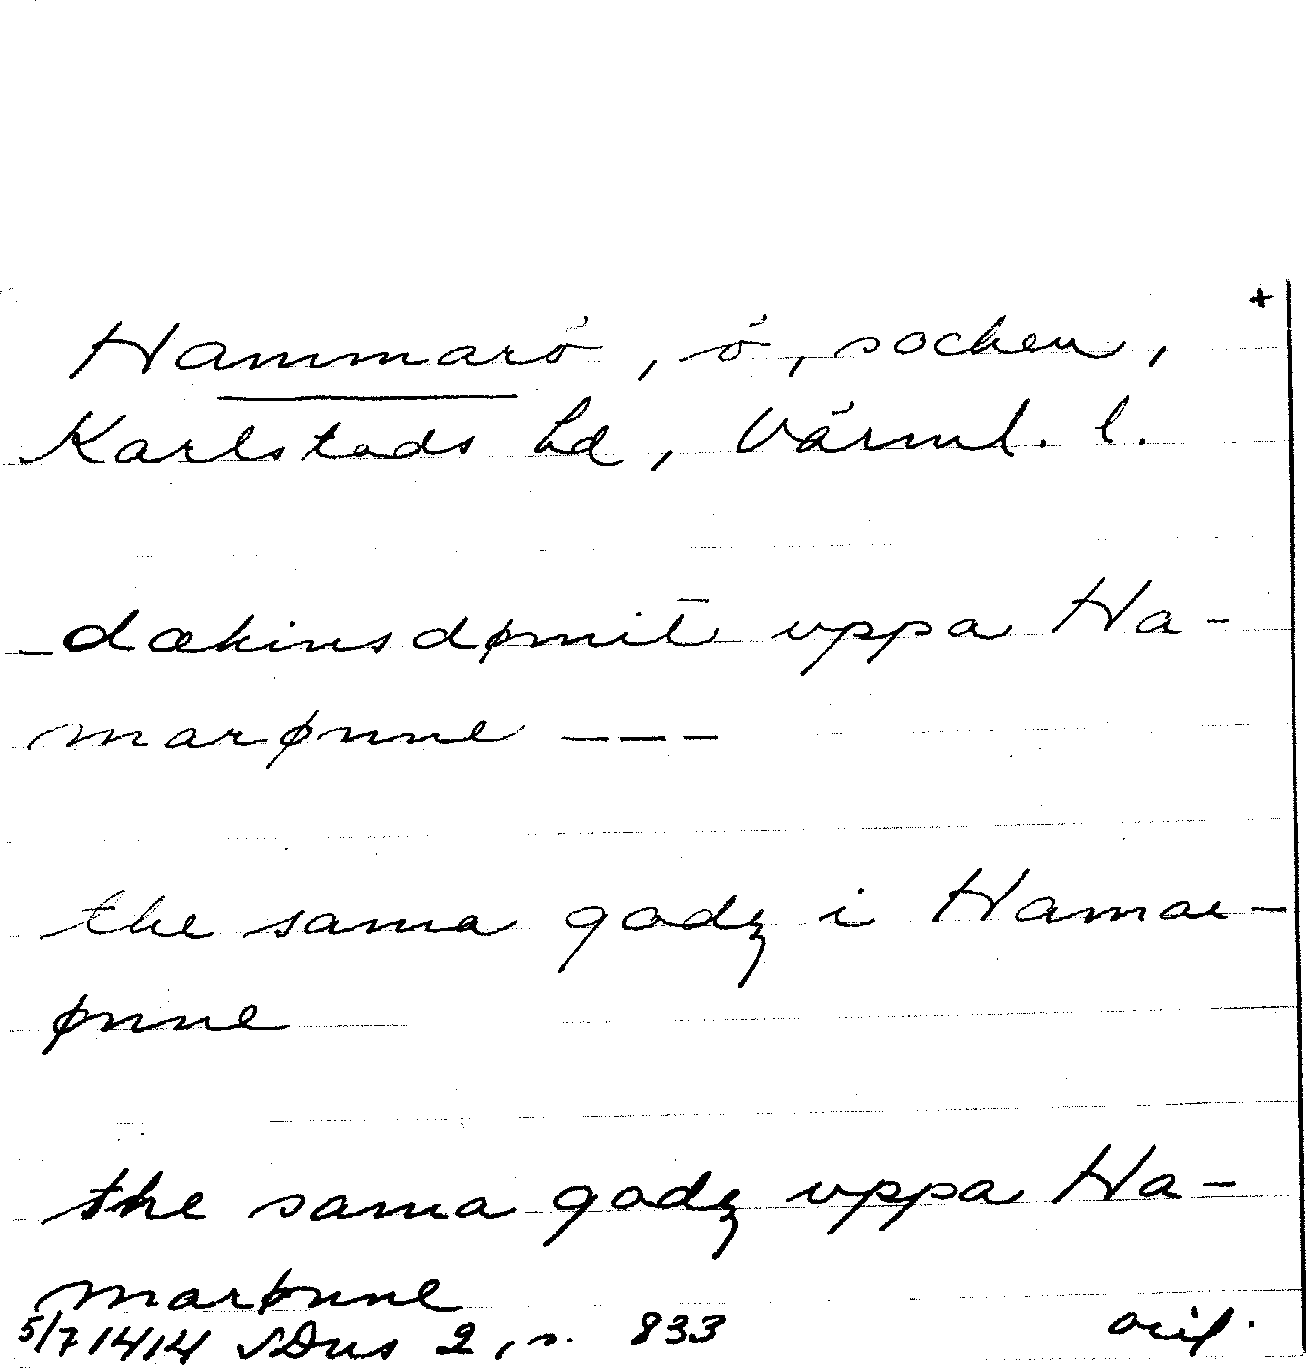 +
Hammarö, ö, socken,
Karlstads hd, Värml. l.
_dækinsdømit̄ uppa Ha-
marønne ---
the sama godz i Hamar-
ønne
the sama godz uppa Ha-
marønne
5/7 1414 SDns 2, s. 833 orig.